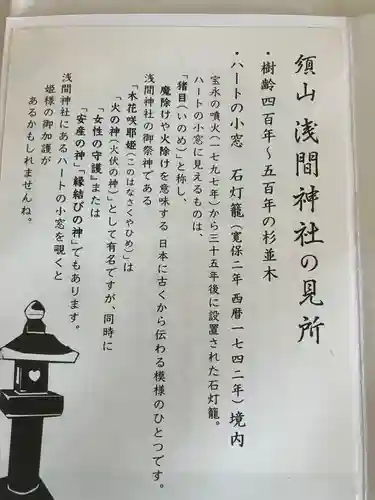 須山 浅間神社の見所
・樹齢四百年～五百年の杉並木
・ハートの小窓 石灯籠(寛保二年 西暦一七四二年)境内
宝永の噴火(一七九七年)から三十五年後に設置された石灯籠。
ハートの小窓に見えるものは、
「猪目(いのめ)」と称し、
魔除けや火除けを意味する 日本に古くから伝わる模様のひとつです。
浅間神社の御祭神である
「木花咲耶姫(このはなさくやひめ)」は
「火の神(火伏の神)」として有名ですが、同時に
「女性の守護』または
「安産の神」「縁結びの神」でもあります。
浅間神社にあるハートの小窓を覗くと
姫様の御加護が
あるかもしれませんね。